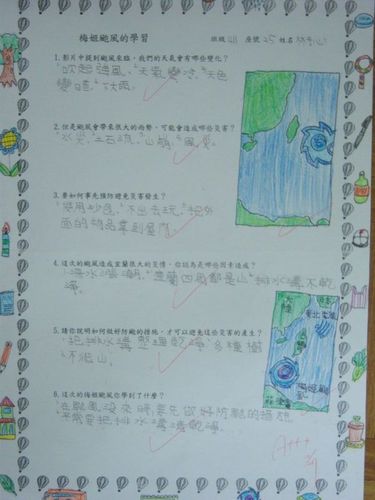 梅姬颱風的學習
班級 座號 25 姓名
1.影片中提到颱風來臨,我們的天氣會有哪些變化?
吹起強風、天氣變冷、天色
變暗、下大雨。
2.但是颱風會帶來很大的雨勢,可能會造成哪些災害?
水災、土石流、山崩、風災。
3.要如何事先預防避免災害發生?
準用沙包、不出去玩、把外
面的物品拿到屋內。
4.這次的颱風造成宜蘭很大的災情,你認為是哪些因素造成?
海水漲潮、宜蘭四周都是山、排水溝不乾
淨。
5.請你說明如何做好防颱的措施,才可以避免這些災害的產生?
把排水溝整理乾淨、多種樹
、不挖山。
6.這次的梅姬颱風你學到了什麼?
在颱風沒來時要先做好防颱的措施
平常要把排水溝清乾淨。
大陸
日本
東北季風
梅姬颱風
菲律賓
A+++